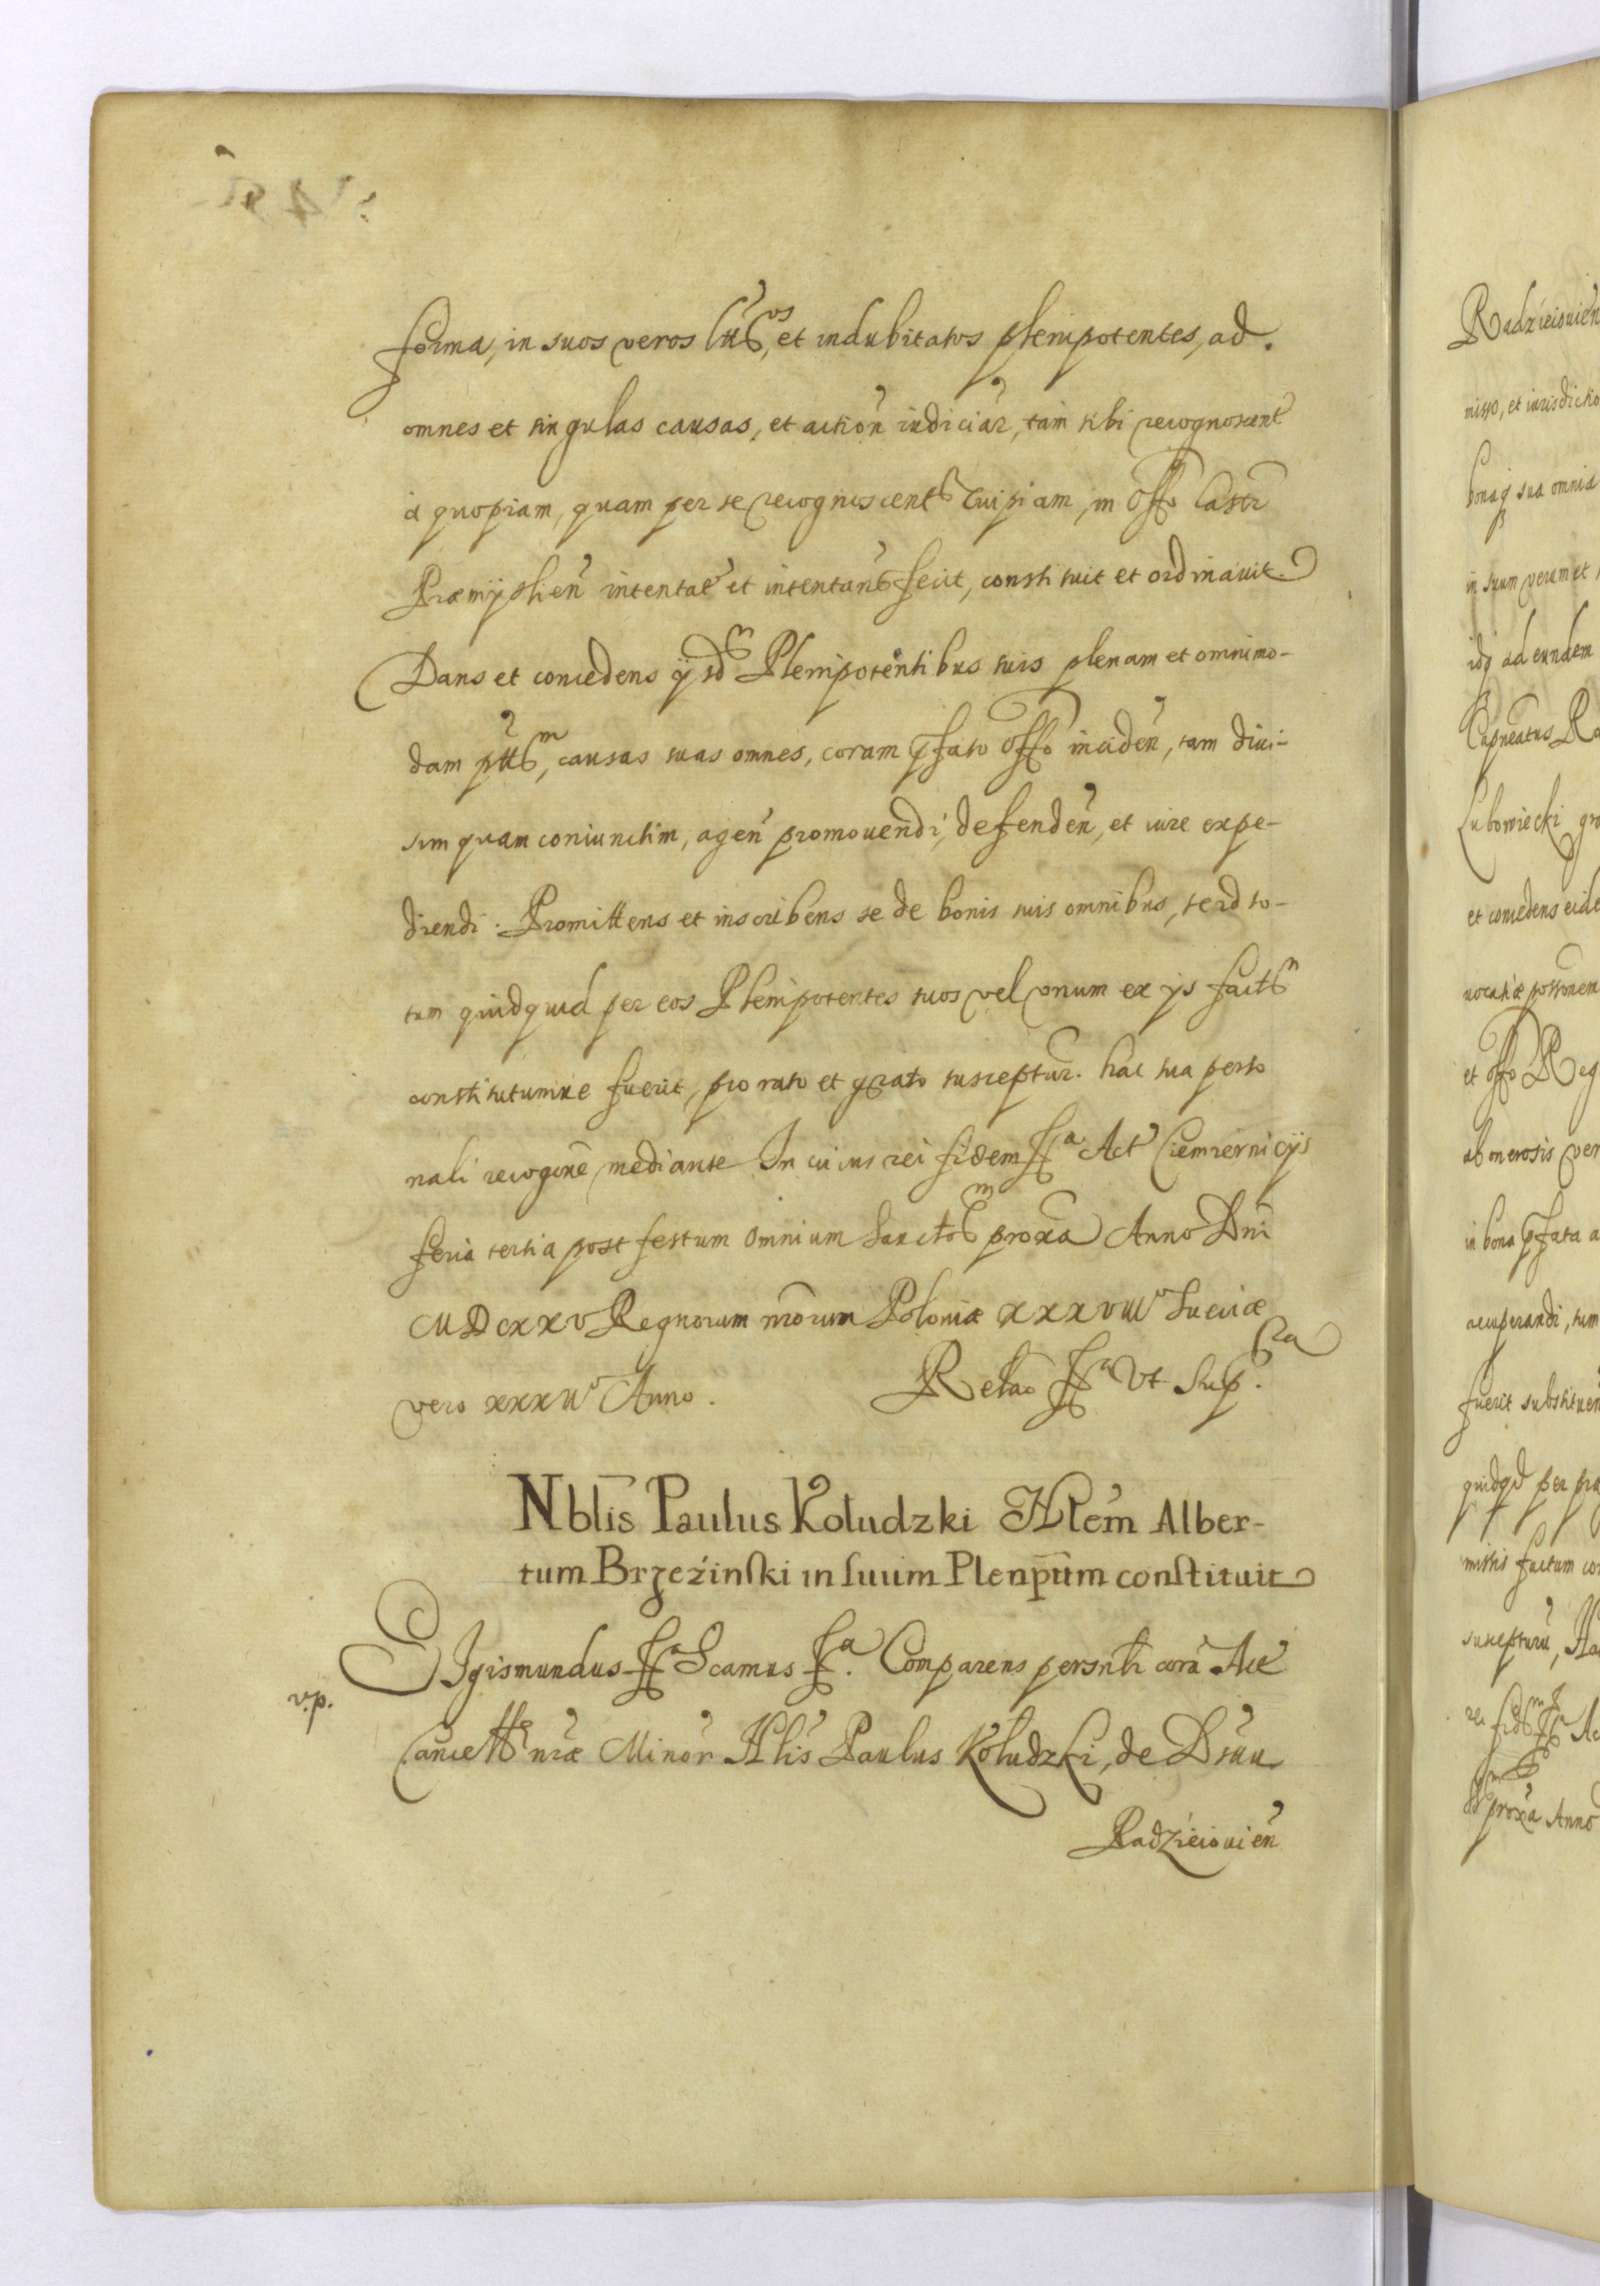 forma, in suos veros lttos, et indubitatos plenipotentes, ad
omnes et singulas causas, et action iudiciar, tam sibi recognoscent
a quopiam, quam per se recognoscent cuipiam, in Offo Castr
Præmÿslien intentat et intentan fecit, constituit et ordinavit.
Dans et concedens ÿsdm Plenipotentibus suis plenam et omnimo-
dam pttem, causas suas omnes, coram pfato Offo inciden, tam divi-
sim quam coniunctim, agen promovendi, defenden, et iure expe-
diendi. Promittens et inscribens se de bonis suis omnibus, se id to-
tum quidquid per eos Plenipotentes suos vel unum ex ÿs factm
constitutumue fuerit, pro rato et grato susceptur. hac sua perso
nali recogne mediante In cuius rei fidem ffa Act Ciemiernicÿs
feria tertia post festum Omnium Sanctom proxa Anno Dni
MDCXXV Regnorum nrorum Poloniæ XXXVIIIo Sueciæ
vero XXXIIo Anno. Relao ffa Vt Supra.
Nblis Paulus Koludzki Hlem Alber-
tum Brzeźinski in suum Plenpttm constituit
SIgismundus ffa Scamus ffa. Comparens persntr cora Act
v.p.
Cancellæ nræ Minor Hlis Paulus Koludzki, de Dsuu
Radzieiouien
Radzieiouien
nisso, et iurisdictio
bonaq sua omnia
in suum verum et
idq ad eundem
Capneatus Ra
Lubowiecki gro
et concedens eide
et offo Reg
ab onerosis ver
in bona pfata a
recuperandi, tum
fuerit substituen
quidqd per pra
missis factum co
suscepturu, Ha
proxa Anno